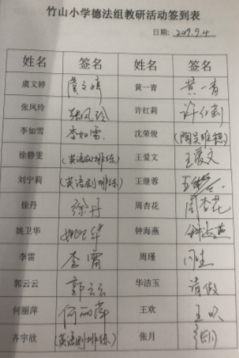 竹山小学德法组教研活动签到表
日期: 2019.9.4
姓名 签名 姓名 签名
虞文婷 虞文婷 黄一青 黄一青
张凤玲 张凤玲 许红莉 许红莉
李如雪 李如雪 沈荣俊
徐静雯 (英语剧排练) 王爱文 王爱文
刘宁莉 (英语剧排练) 王继蓉
徐丹 徐丹 周杏花 周杏花
姚卫华 姚卫华 钟海燕 钟海燕
李雷 李雷 周瑾 周瑾
郭云云 郭云云 华浩玉 请假
何丽萍 何丽萍 王欢 王欢
齐宇欣 (英语剧排练) 张月 张月